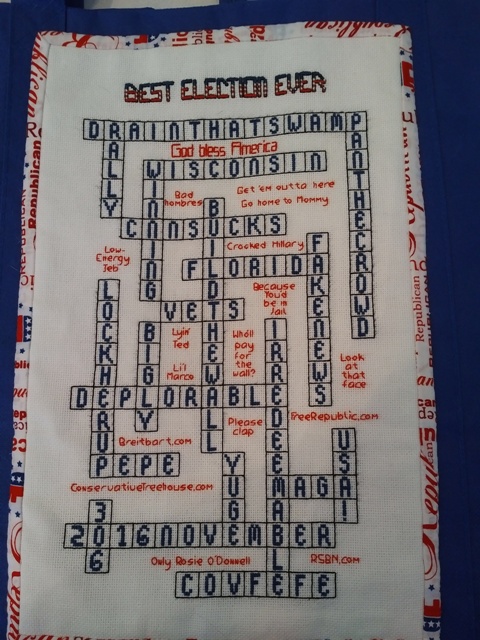 BEST ELECTION EVER
DRAINTHATSWAMP
RALLY
PANTHECROWD
God bless America
WISCONSIN
WINNING
Bad
hombres
Get 'em outta here
Go home to Mommy
BUILDTHEWALL
CNNSUCKS
Low-
Energy
Jeb
Crooked Hillary
FAKENEWS
FLORIDA
Because
You'd
be in
Jail
LOCKHERUP
VETS
BIGLY
Lyin'
Ted
Who'll
pay
for
the
wall?
IRREDEEMABLE
Li'l
Marco
Look
at
that
face
DEPLORABLE
Please
clap
FreeRepublic.com
Breitbart.com
USA!
PEPE
YUGE
ConservativeTreehouse.com
MAGA
306
2016NOVEMBER
Only Rosie O'Donnell
RSBN.com
COVFEFE
Republican